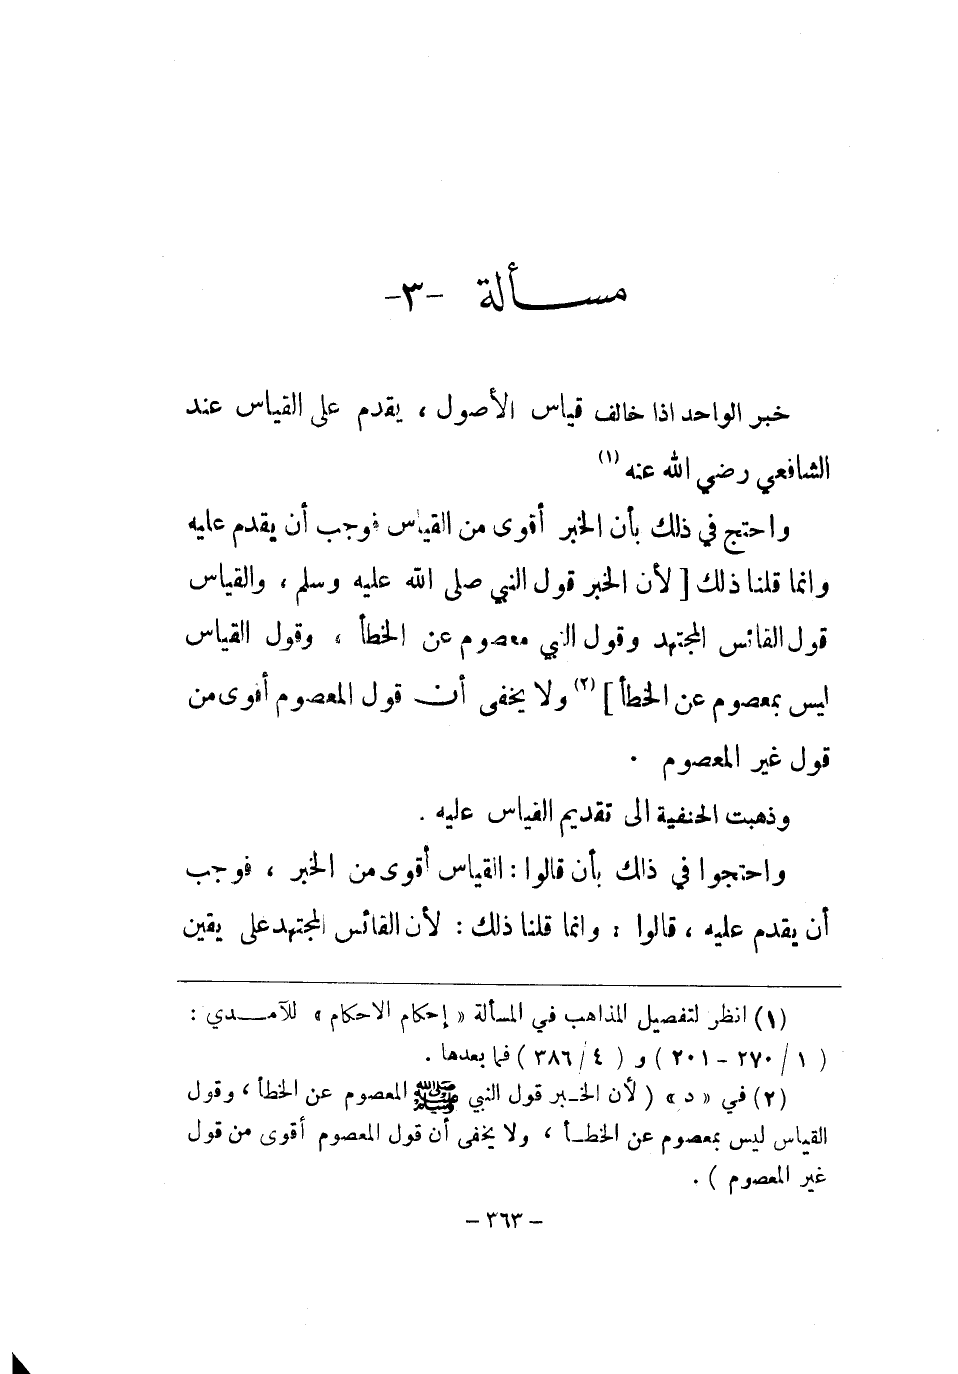 مسألة -٣-
خبر الواحد اذا خالف قياس الأصول ، يقدم على القياس عند
الشافعي رضي الله عنه (١)
واحتج في ذلك بأن الخبر أقوى من القياس فوجب أن يقدم عليه
وانما قلنا ذلك [ لأن الخبر قول النبي صلى الله عليه وسلم ، والقياس
قول القائس المجتهد وقول النبي معصوم عن الخطأ ، وقول القياس
ليس بمعصوم عن الخطأ ] (٢) ولا يخفى أن قول المعصوم أقوى من
قول غير المعصوم .
وذهبت الحنفية الى تقديم القياس عليه .
واحتجوا في ذلك بأن قالوا : القياس أقوى من الخبر ، فوجب
أن يقدم عليه ، قالوا : وانما قلنا ذلك : لأن القائس المجتهد على يقين
(١) انظر لتفصيل المذاهب في المسألة « إحكام الاحكام » للآمدي :
( ١ / ٢٧٠ - ٢٠١ ) و ( ٤ / ٣٨٦ ) فما بعدها .
(٢) في « د » ( لأن الخبر قول النبي ﷺ المعصوم عن الخطأ ، وقول
القياس ليس بمعصوم عن الخطأ ، ولا يخفى أن قول المعصوم أقوى من قول
غير المعصوم ) .
- ٣٦٣ -